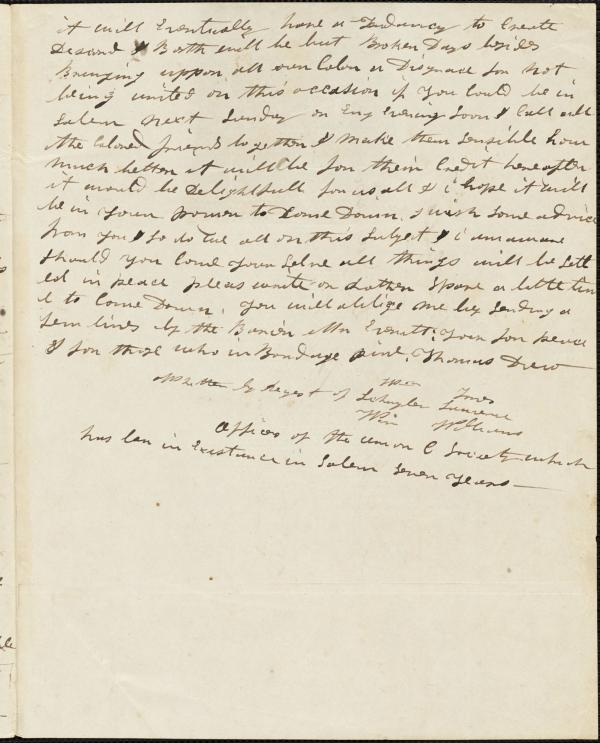 it will Eventually have a Tendancy to Create
Discord & Both will be but Broken Days besides
Bringing uppon all our Color a Disgrace for Not
being united on this occasion if you Could be in
Salem Next Sunday or Eny Evening Soon & Call all
the Colored friends to gether & Make them Sensible how
much better it will be for their Credit hereafter
it would be Delightfull for us all & i hope it will
be in your power to Come Down. I wish Some advice
from you & So do We all on this Subject & i am aware
Should you Come your Selve all things will be Sett
ed in peace pleas write or Rather Spare a little tim
e to Come Down. you will ablige me by Sending a
few lines by the Barier Mr Everett: your for peace
& for those who in Bondage pine. Thomas Drew
Written by Reqest of
Wm Jones
Schuyler Laurence
Wm Williams
Offices of the union C Society which
has ben in Existance in Salem Seven years—